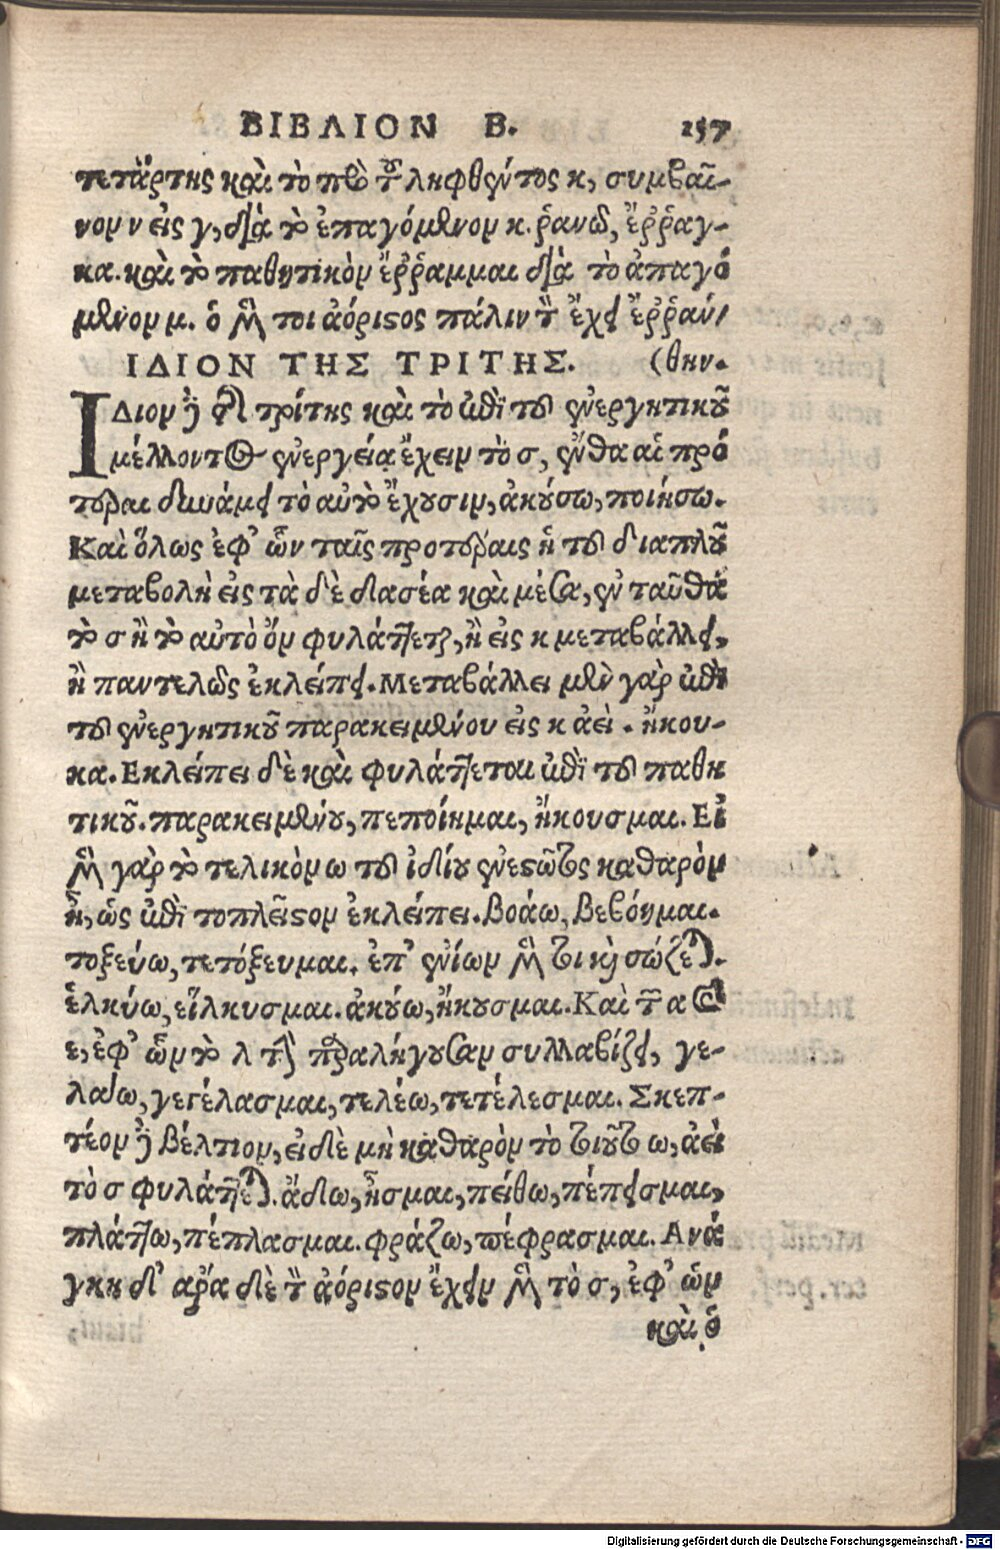 ΒΙΒΛΙΟΝ Β. 157
τετάρτης καὶ τὸ πρὸ τοῦ ληφθέντος κ, συμβαῖ-
νον ν εἰς γ, διὰ τὸ ἐπαγόμενον κ. ῥανῶ, ἔῤῥαγ-
κα. καὶ τὸ παθητικὸν ἔῤῥαμμαι διὰ τὸ ἀπαγό
μενον μ. ὁ μέν τοι ἀόριστος πάλιν τὸ ν ἔχει ἔῤῥάν/
ΙΔΙΟΝ ΤΗΣ ΤΡΙΤΗΣ. (θην.
ΙΔιον δὲ τῆς τρίτης καὶ τὸ ἐπὶ τοῦ ἐνεργητικοῦ
μέλλοντος ἐνεργείᾳ ἔχειν τὸ σ, ἔνθα αἱ πρό
τεραι δυνάμει τὸ αὐτὸ ἔχουσιν, ἀκούσω, ποιήσω.
Καὶ ὅλως ἐφ' ὧν ταῖς προτέραις ἡ τοῦ διαπλοῦ
μεταβολὴ εἰς τὰ δὲ δασέα καὶ μέσα, ἐνταῦθα
τὸ σ ἢ τὸ αὐτὸ ὂν φυλάττεται, ἢ εἰς κ μεταβάλλει,
ἢ παντελῶς ἐκλείπει. Μεταβάλλει μὲν γὰρ ἐπὶ
τοῦ ἐνεργητικοῦ παρακειμένου εἰς κ ἀεὶ. ἤκου-
κα. Εκλείπει δὲ καὶ φυλάττεται ἐπὶ τοῦ παθη
τικοῦ. παρακειμένου, πεποίημαι, ἤκουσμαι. Εἰ
μὲν γὰρ τὸ τελικὸν ω τοῦ ἰδίου ἐνεστῶτος καθαρὸν
ᾖ, ὡς ἐπὶ τοπλεῖστον ἐκλείπει. βοάω, βεβόημαι.
τοξεύω, τετόξευμαι. ἐπ' ἐνίων μέν τοι καὶ σώζεται.
ἑλκύω, εἵλκυσμαι. ἀκούω, ἤκουσμαι. Καὶ τῶν α καὶ
ε, ἐφ' ὧν τὸ λ τὴν παραλήγουσαν συλλαβίζει, γε-
λάω, γεγέλασμαι, τελέω, τετέλεσμαι. Σκεπ-
τέον δὲ βέλτιον, εἰ δὲ μὴ καθαρὸν τὸ τοιοῦτο ω, ἀεὶ
τὸ σ φυλάττεται. ἄδω, ᾖσμαι, πείθω, πέπεισμαι,
πλάττω, πέπλασμαι. φράζω, πέφρασμαι. Ανά
γκη δ' ἄρα δὲ τὸν ἀόριστον ἔχειν μὲν τὸ σ, ἐφ' ὧν
καὶ ὁ
Digitalisierung gefördert durch die Deutsche Forschungsgemeinschaft - DFG